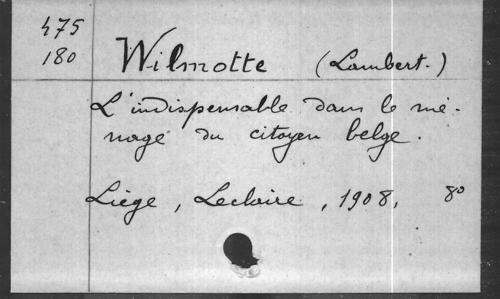 475
180
Wilmotte (Lambert.)
L'indispensable dans le mé-
nage du citoyen belge.
Liège, Leclaire, 1908, 8°